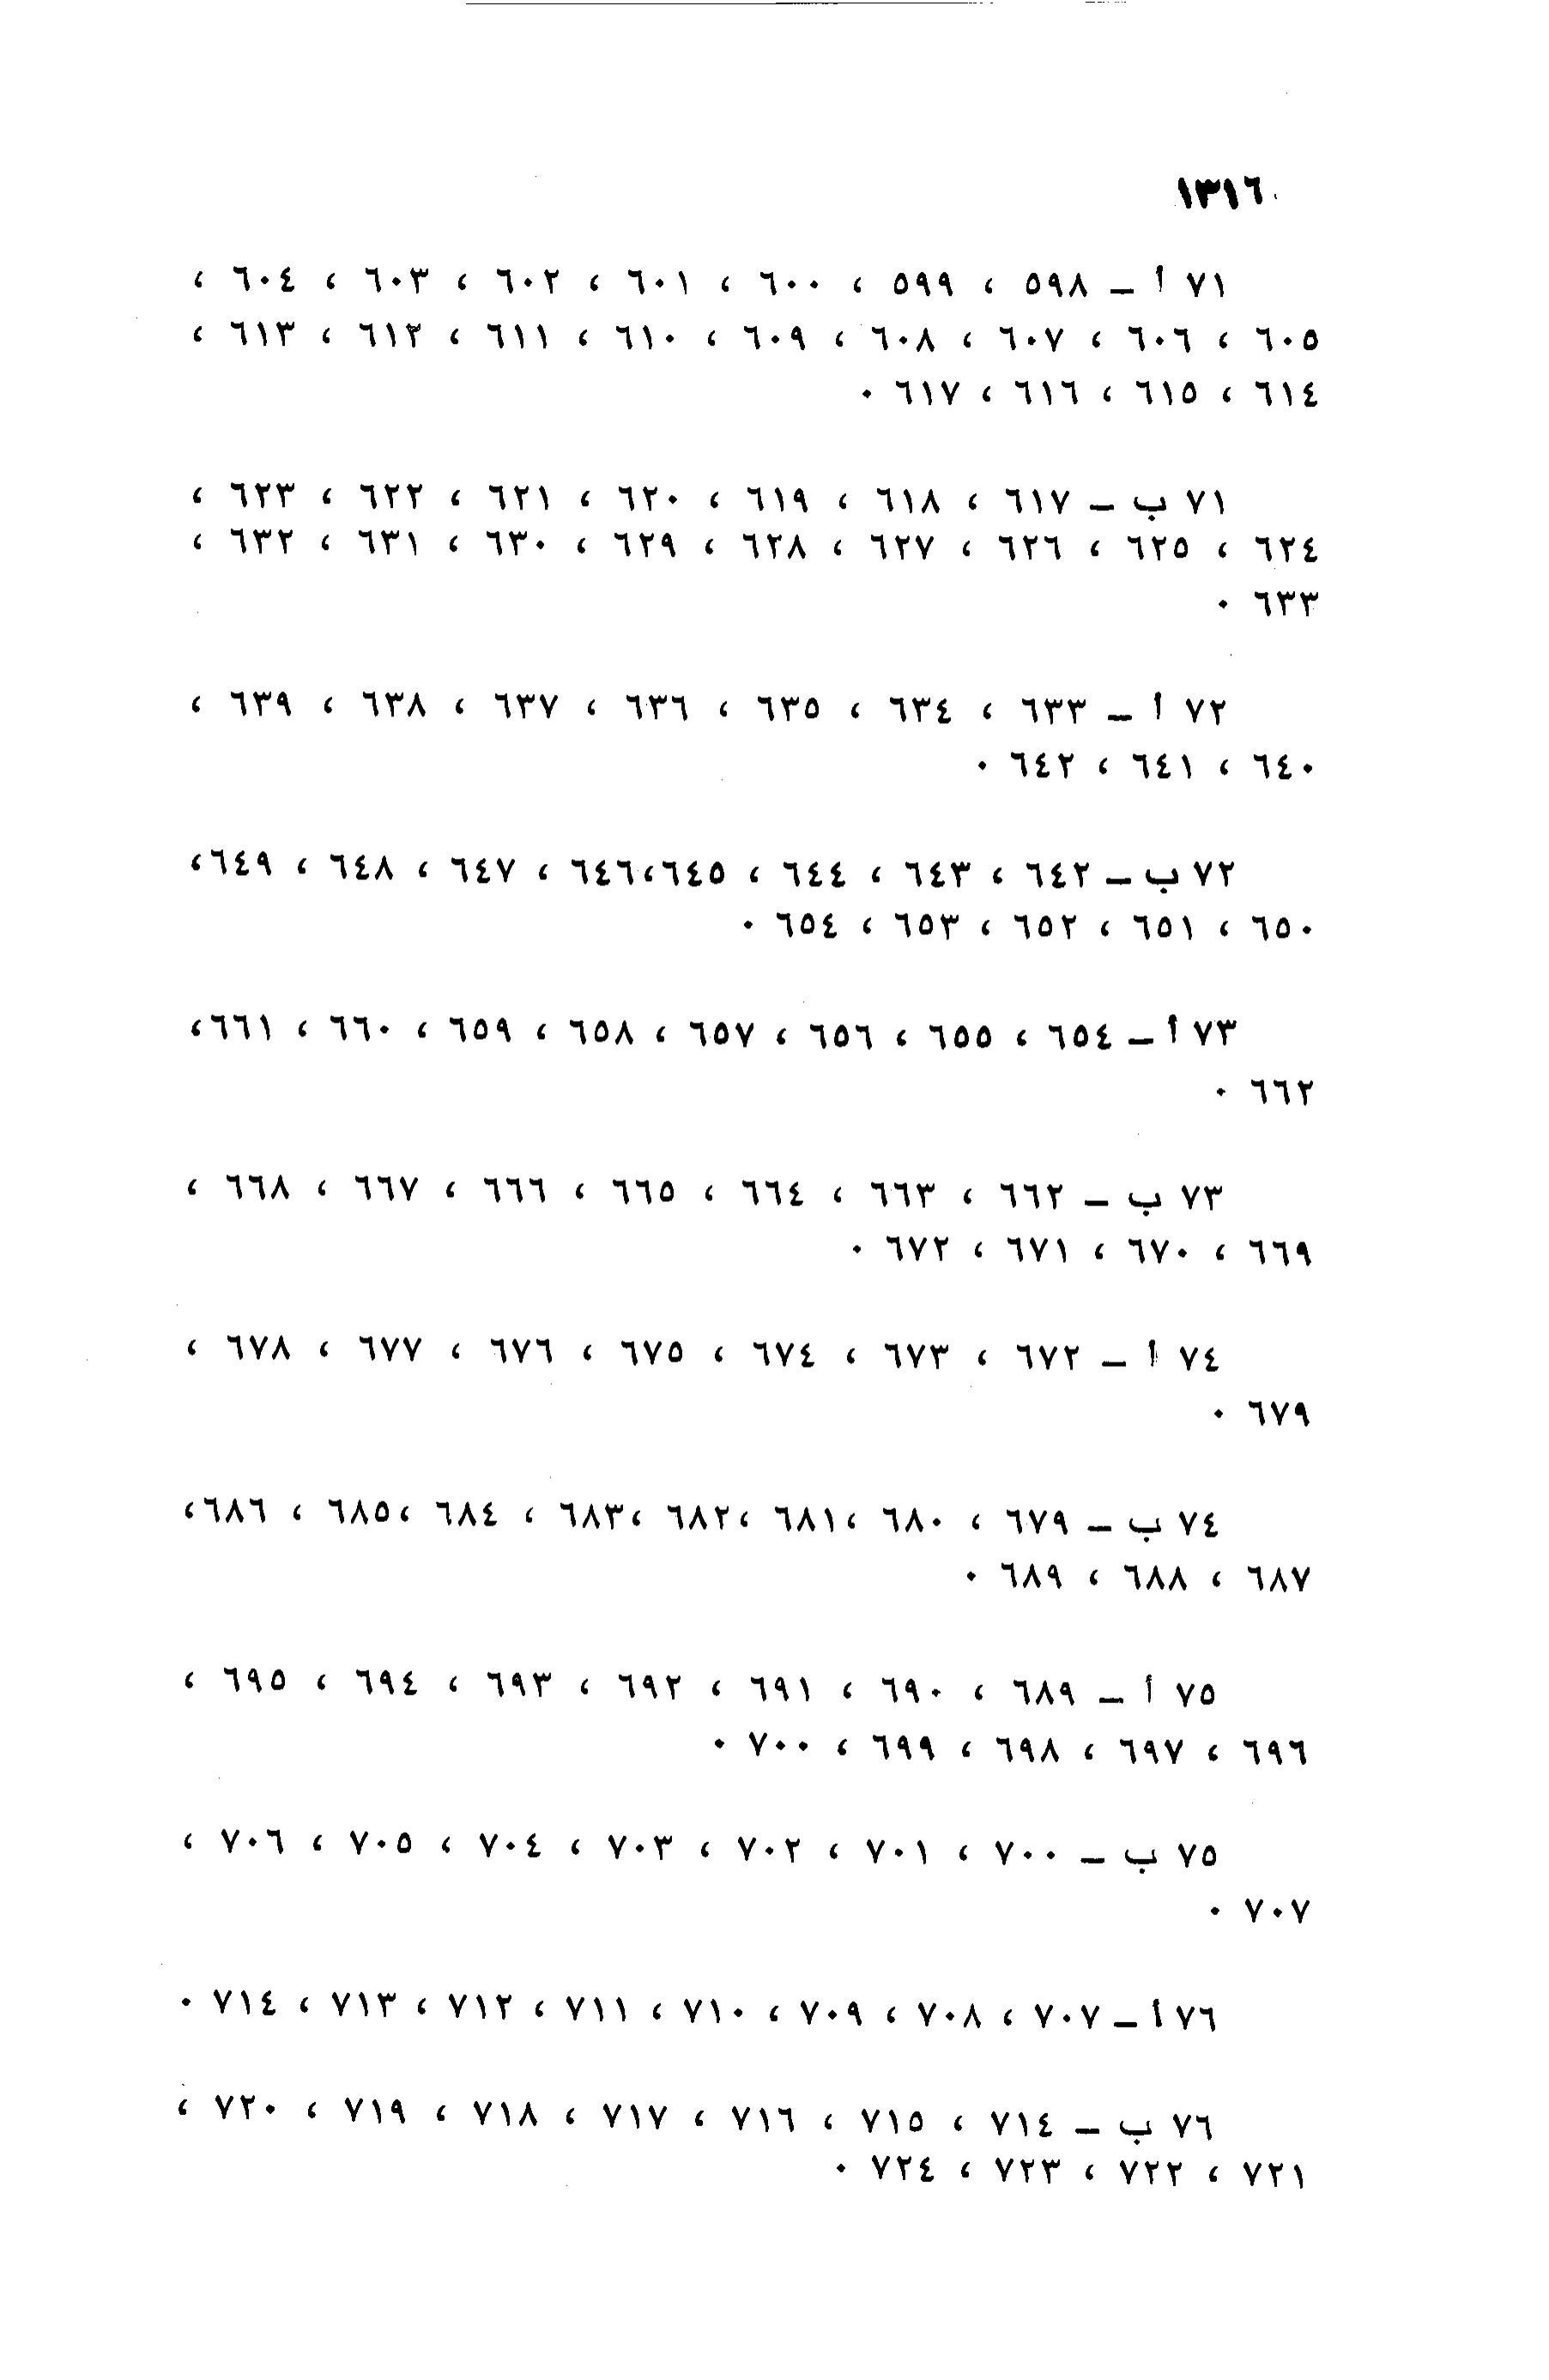 ١٣١٦
٧١ أ ـ ٥٩٨ ، ٥٩٩ ، ٦٠٠ ، ٦٠١ ، ٦٠٢ ، ٦٠٣ ، ٦٠٤ ،
٦٠٥ ، ٦٠٦ ، ٦٠٧ ، ٦٠٨ ، ٦٠٩ ، ٦١٠ ، ٦١١ ، ٦١٢ ، ٦١٣ ،
٦١٤ ، ٦١٥ ، ٦١٦ ، ٦١٧ ٠
٧١ ب ـ ٦١٧ ، ٦١٨ ، ٦١٩ ، ٦٢٠ ، ٦٢١ ، ٦٢٢ ، ٦٢٣ ،
٦٢٤ ، ٦٢٥ ، ٦٢٦ ، ٦٢٧ ، ٦٢٨ ، ٦٢٩ ، ٦٣٠ ، ٦٣١ ، ٦٣٢ ،
٦٣٣ ٠
٧٢ أ ـ ٦٣٣ ، ٦٣٤ ، ٦٣٥ ، ٦٣٦ ، ٦٣٧ ، ٦٣٨ ، ٦٣٩ ،
٦٤٠ ، ٦٤١ ، ٦٤٢ ٠
٧٢ ب ـ ٦٤٢ ، ٦٤٣ ، ٦٤٤ ، ٦٤٥،٦٤٦ ، ٦٤٧ ، ٦٤٨ ، ٦٤٩،
٦٥٠ ، ٦٥١ ، ٦٥٢ ، ٦٥٣ ، ٦٥٤ ٠
٧٣ أ ـ ٦٥٤ ، ٦٥٥ ، ٦٥٦ ، ٦٥٧ ، ٦٥٨ ، ٦٥٩ ، ٦٦٠ ، ٦٦١،
٦٦٢ ٠
٧٣ ب ـ ٦٦٢ ، ٦٦٣ ، ٦٦٤ ، ٦٦٥ ، ٦٦٦ ، ٦٦٧ ، ٦٦٨ ،
٦٦٩ ، ٦٧٠ ، ٦٧١ ، ٦٧٢ ٠
٧٤ أ ـ ٦٧٢ ، ٦٧٣ ، ٦٧٤ ، ٦٧٥ ، ٦٧٦ ، ٦٧٧ ، ٦٧٨ ،
٦٧٩ ٠
٧٤ ب ـ ٦٧٩ ، ٦٨٠ ،٦٨١ ،٦٨٢ ،٦٨٣ ، ٦٨٤ ،٦٨٥ ، ٦٨٦،
٦٨٧ ، ٦٨٨ ، ٦٨٩ ٠
٧٥ أ ـ ٦٨٩ ، ٦٩٠ ، ٦٩١ ، ٦٩٢ ، ٦٩٣ ، ٦٩٤ ، ٦٩٥ ،
٦٩٦ ، ٦٩٧ ، ٦٩٨ ، ٦٩٩ ، ٧٠٠ ٠
٧٥ ب ـ ٧٠٠ ، ٧٠١ ، ٧٠٢ ، ٧٠٣ ، ٧٠٤ ، ٧٠٥ ، ٧٠٦ ،
٧٠٧ ٠
٧٦ أ ـ ٧٠٧ ، ٧٠٨ ، ٧٠٩ ، ٧١٠ ، ٧١١ ، ٧١٢ ، ٧١٣ ، ٧١٤ ٠
٧٦ ب ـ ٧١٤ ، ٧١٥ ، ٧١٦ ، ٧١٧ ، ٧١٨ ، ٧١٩ ، ٧٢٠ ،
٧٢١ ، ٧٢٢ ، ٧٢٣ ، ٧٢٤ ٠